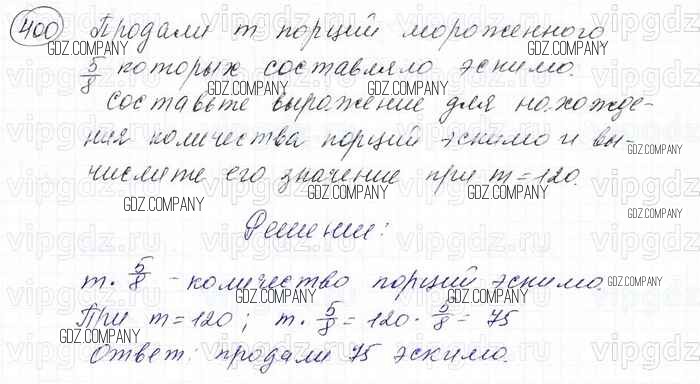 400 Продали m порций мороженного
5/8 которых составляло эскимо.
Составьте выражение для нахожде-
ния количества порций эскимо и вы-
числите его значение при m = 120.
Решение:
m · 5/8 - количество порций эскимо.
При m = 120; m · 5/8 = 120 · 5/8 = 75
Ответ: продали 75 эскимо.
GDZ.COMPANY
vipgdz.ru